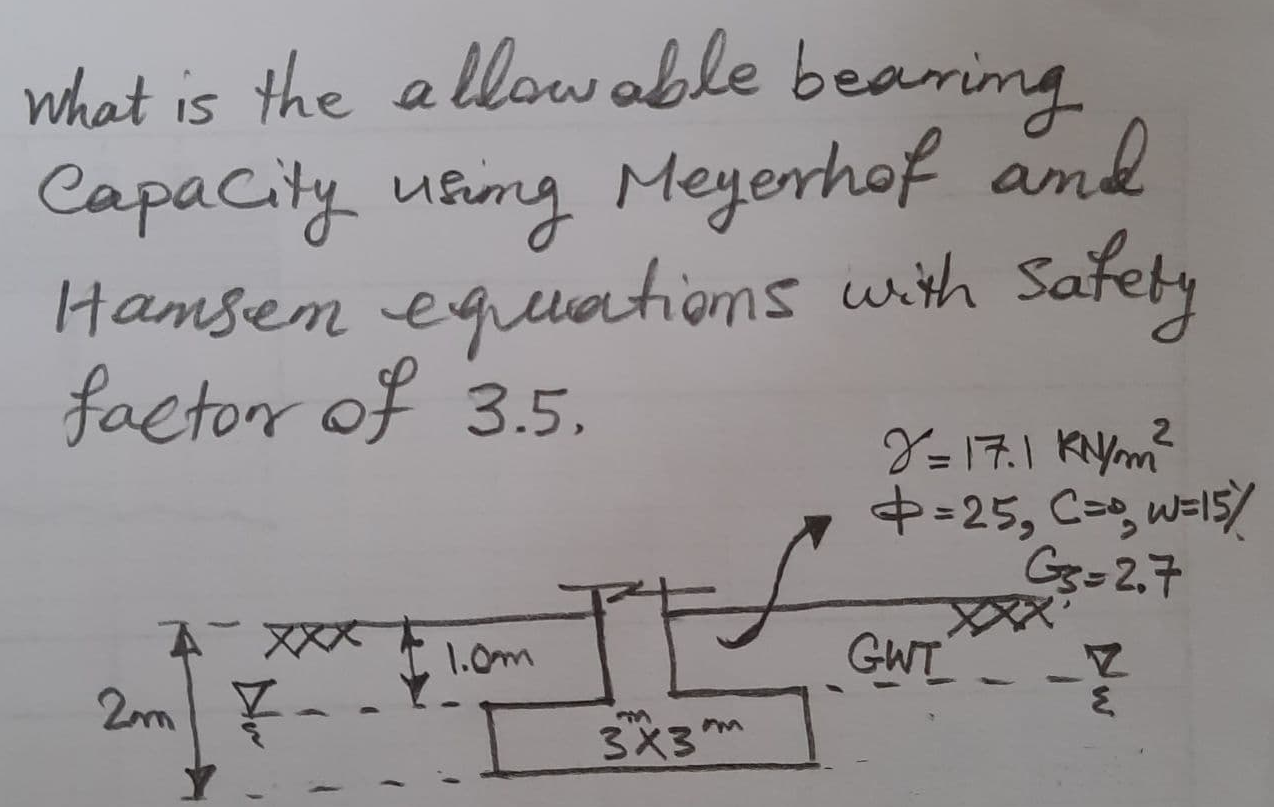 What is the allowable bearing
Capacity using Meyerhof and
Hansen equations with Safety
factor of 3.5.
γ = 17.1 KN/m²
ϕ = 25, C=0, W=15%
Gs = 2.7
XXX
XXX
1.0m
GWT
2m
3m X 3m